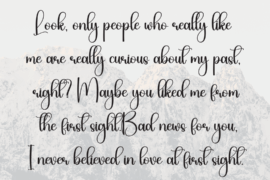 Look, only people who really like
me are really curious about my past,
right? Maybe you liked me from
the first sight.Bad news for you,
I never believed in love at first sight.